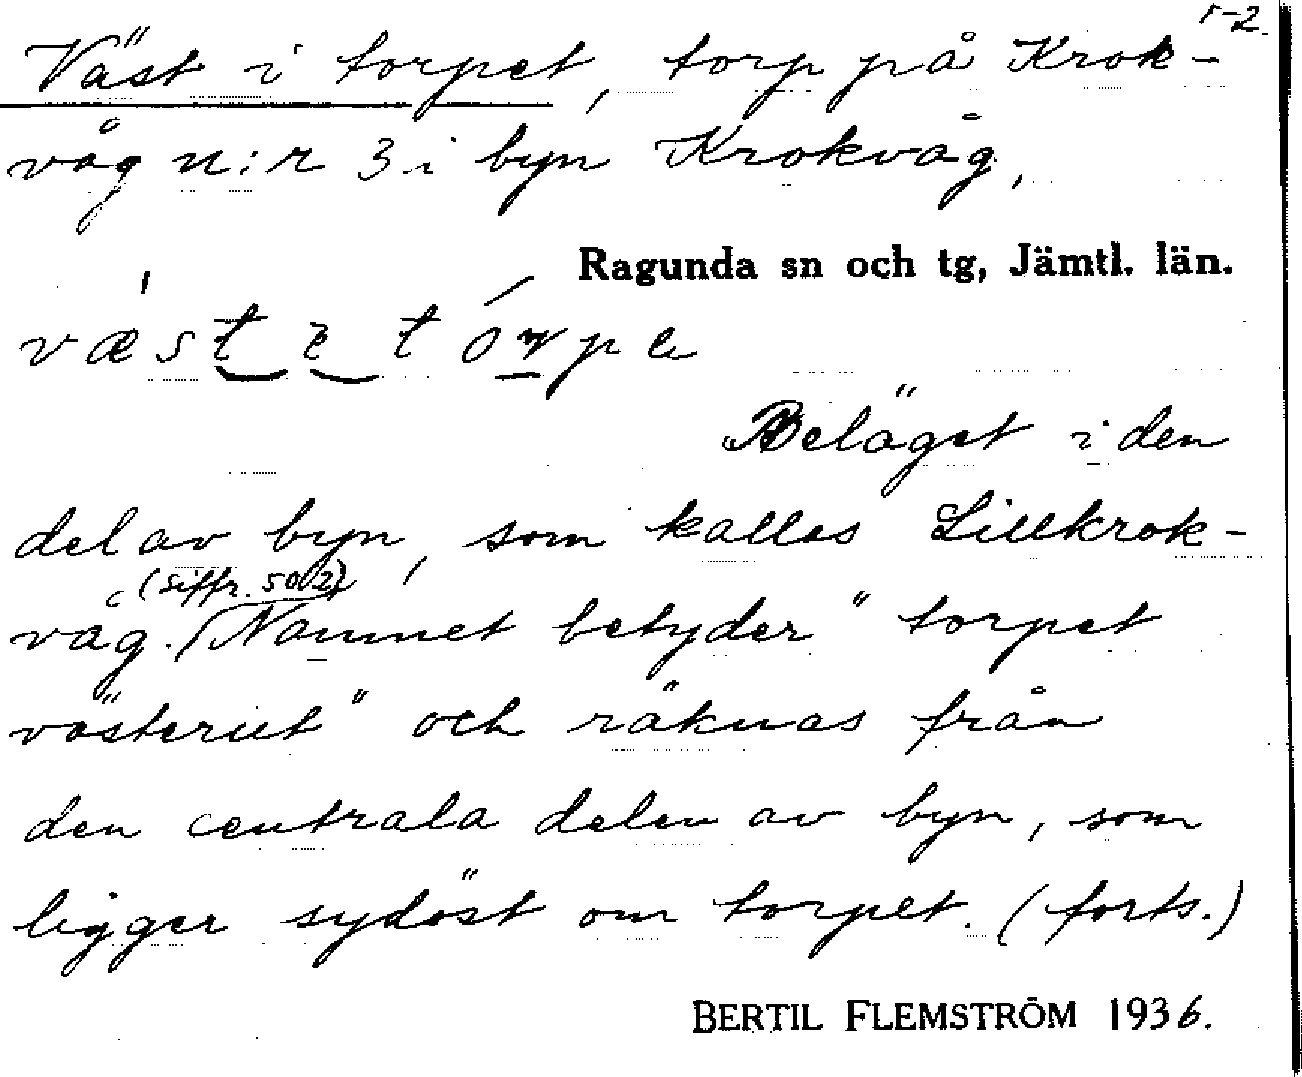 1-2.
Väst i torpet, torp på Krok-
våg n:r 3 i byn Krokvåg,
Ragunda sn och tg, Jämtl. län.
væst i tórpe
Beläget i den
del av byn, som kallas Lillkrok-
(siffr. 502)
våg. Namnet betyder "torpet
västerut" och räknas från
den centrala delen av byn, som
ligger sydöst om torpet. (forts.)
BERTIL FLEMSTRÖM 1936.